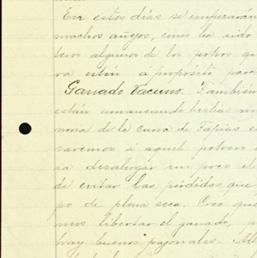 En estos días se empezarán
muchos añejos, uno ha sido
teros algunos de los potros que
ra, están a propósito para
Ganado Vacuno. También
están amansando bestias mu
mona de la cueva de Tapias es
saremos á aquel potrero
ra desahogar un poco el
de evitar las pérdidas que
po de plena seca. Creo que
mos libertar el ganado, p
hay buenos pajonales. All